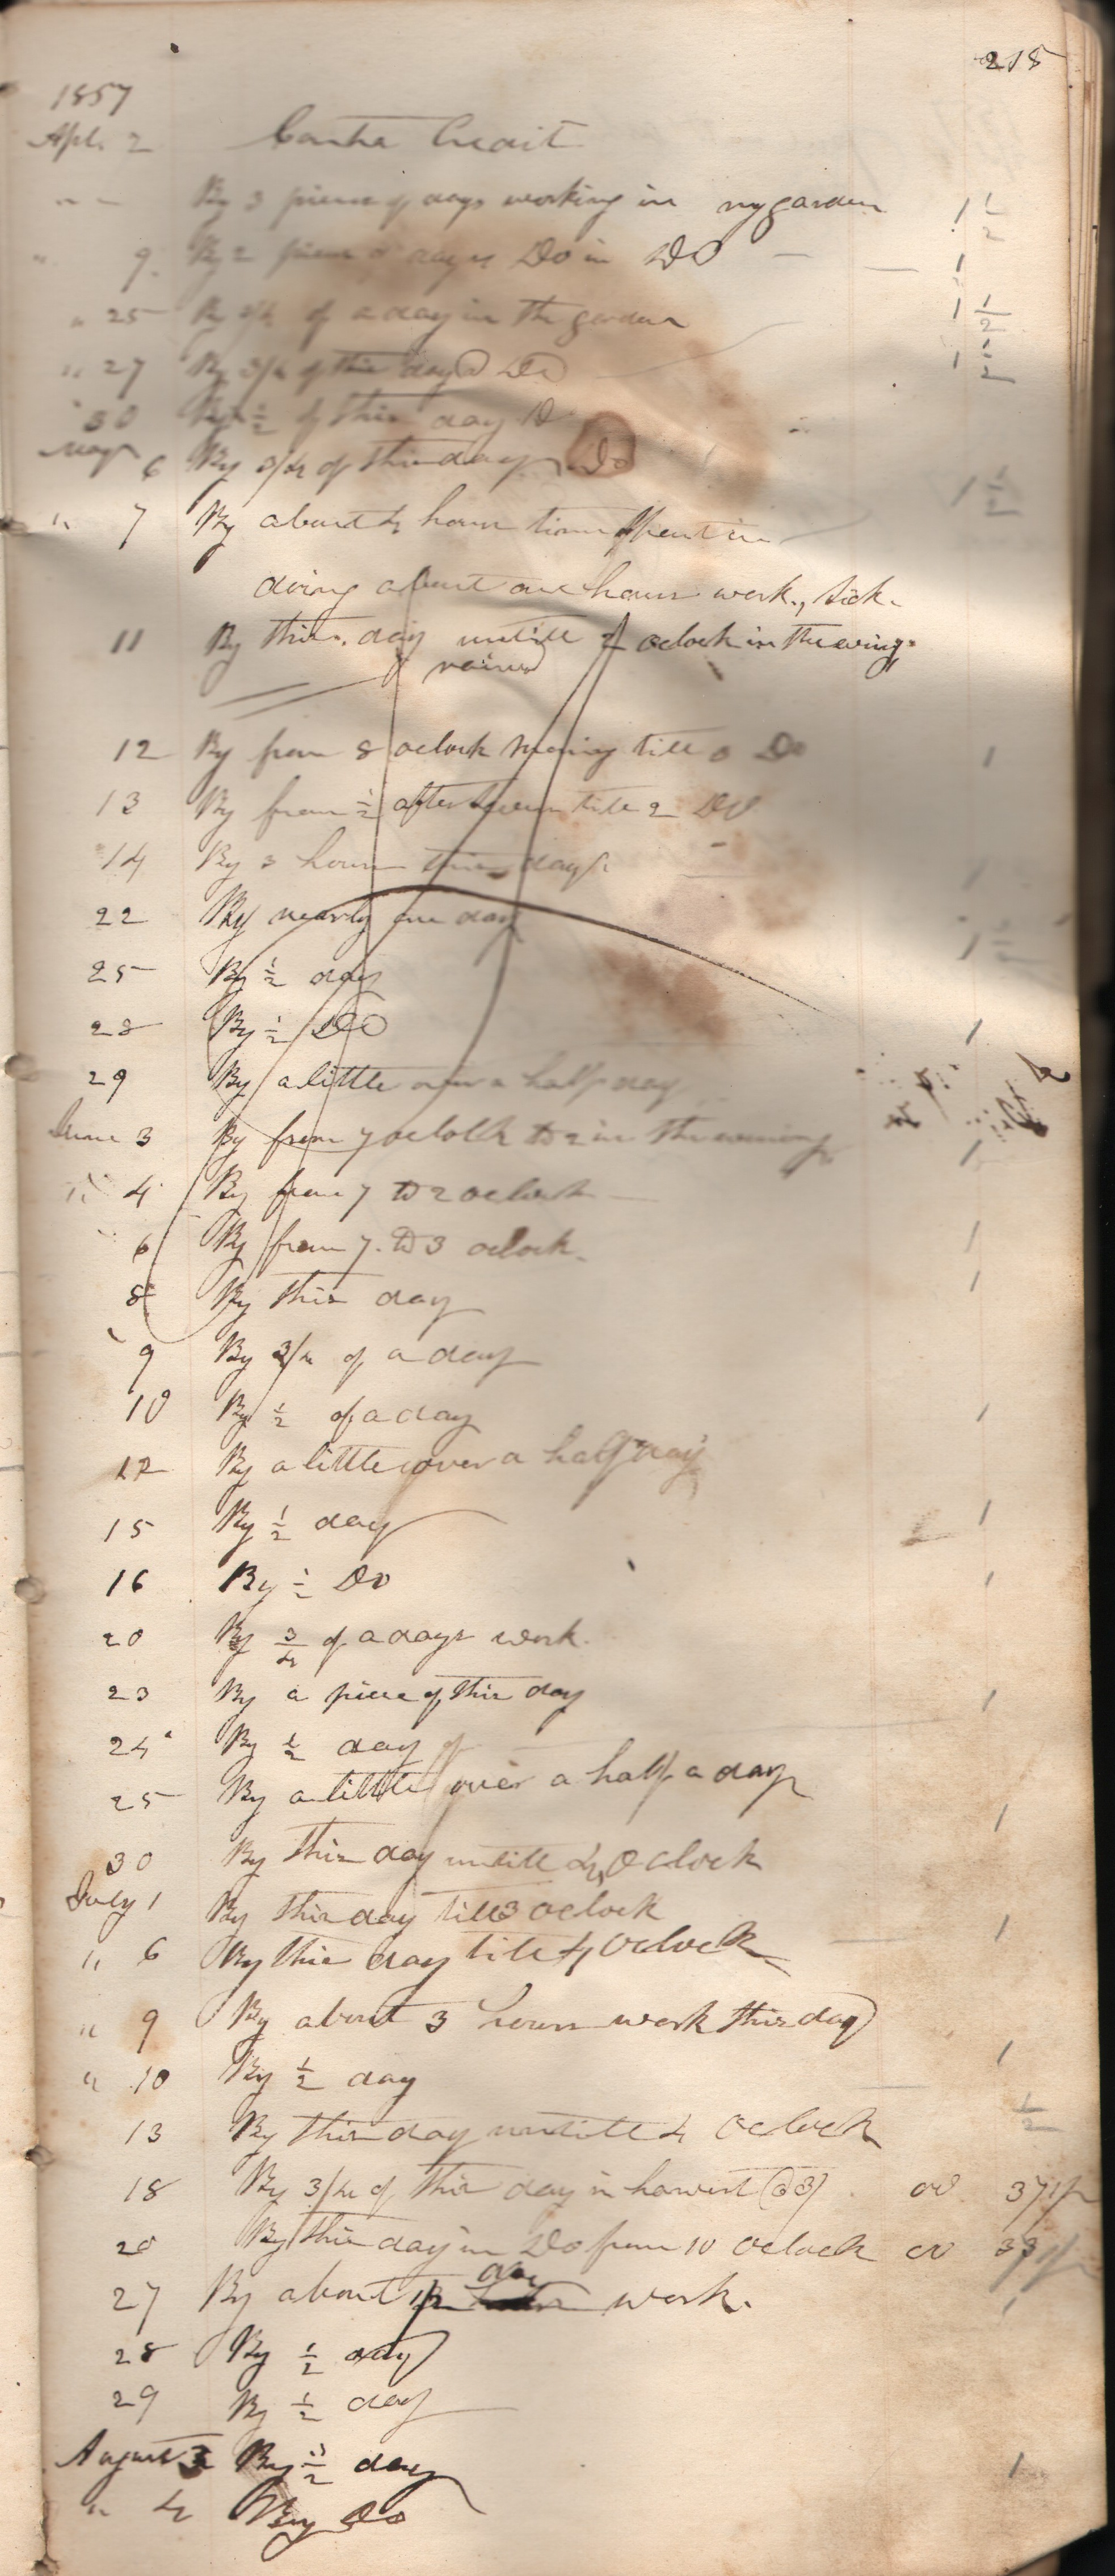 215
1857
Apl. 2 Contra Credit
" " By 3 pieces of days working in my garden 1 1/2
" 9 By 2 pieces of days Do in Do 1
" 25 By 3/4 of a day in the garden 1
" 27 By 3/4 of this day Do 1
" 30 By 1/2 of this day D
May 6 By 3/4 of this day Do
" 7 By about 4 hours time spent in
doing about one hours work, sick.
11 By this day untill oclock in the evnig
rained
12 By from 8 oclock morning till Do 1
13 By from 1/2 after till 2 Do
14 By 3 hours this day
22 By nearly one day
25 By 1/2 day
28 By 1/2 Do 1
29 By a little over a half day
June 3 By from 7 oclock to 2 in the evening 1
" 4 By from 7 to 2 oclock
6 By from 7. to 3 oclock. 1
8 By this day 1
9 By 3/4 of a day
10 By 1/2 of a day 1
12 By a little over a half day
15 By 1/2 day 1
16 By 1/2 Do 1
20 By 3/4 of a days work.
23 By a piece of this day 1
24 By 1/2 day
25 By a little over a half a day 1
30 By this day untill 4 Oclock
July 1 By this day till 3 oclock 1
" 6 By this day till 4 Oclock
" 9 By about 3 hours work this day
" 10 By 1/2 day 1
13 By this day untill 4 Oclock 1/2
18 By 3/4 of this day in harvest 00 37 1/2
20 By this day in Do from 10 Oclock 00
27 By about 1/2 day work. 1
28 By 1/2 day
29 By 1/2 day
August 3 By 1/2 day 1
" 4 By Do